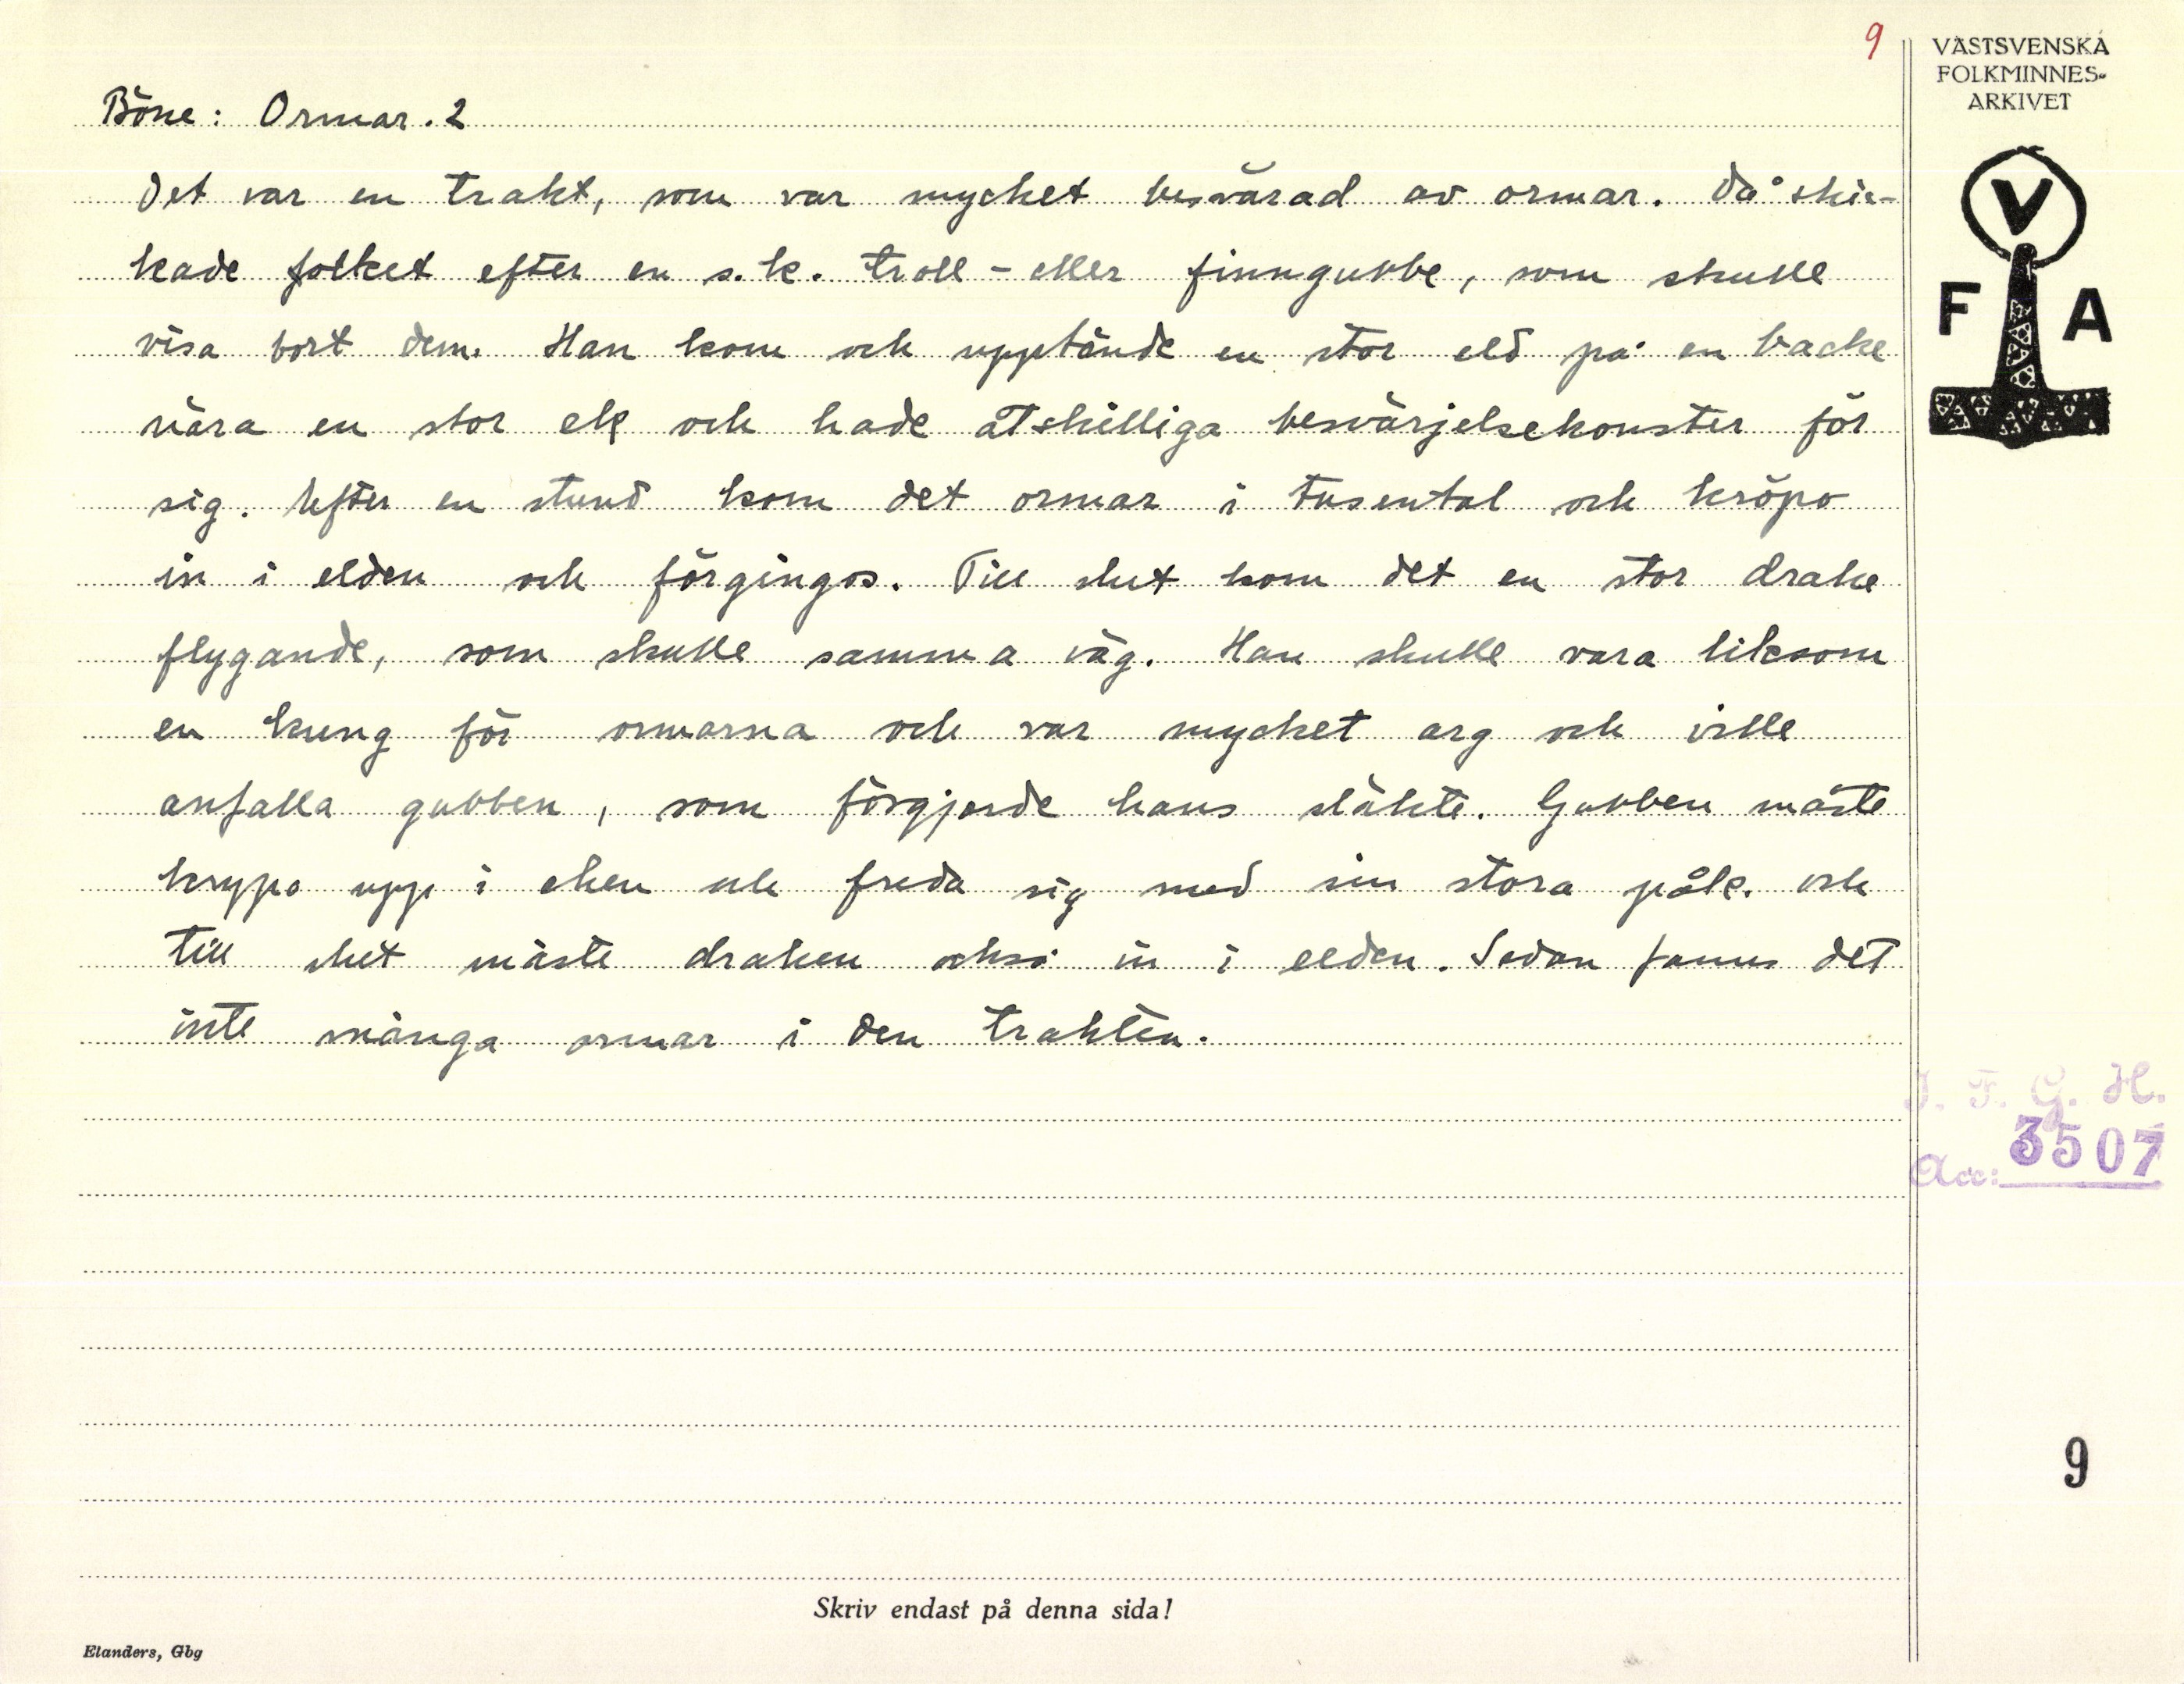 9
VÄSTSVENSKA
FOLKMINNES-
ARKIVET
Böne: Ormar. 2
Det var en trakt, som var mycket besvärad av ormar. Då skic-
kade folket efter en s.k. troll- eller finngubbe, som skulle
visa bort dem. Han kom och upptände en stor eld på en backe
nära en stor ek och hade åtskilliga besvärjelsekonster för
sig. Efter en stund kom det ormar i tusental och kröpo
in i elden och förgingos. Till slut kom det en stor drake
flygande, som skulle samma väg. Han skulle vara liksom
en kung för ormarna och var mycket arg och ville
anfalla gubben, som förgjorde hans släkte. Gubben måste
krypa upp i eken och freda sig med sin stora påk. och
till slut måste draken också in i elden. Sedan fanns det
inte många ormar i den trakten.
V
F A
I. F. G. H.
Acc: 3507
9
Skriv endast på denna sida!
Elanders, Gbg